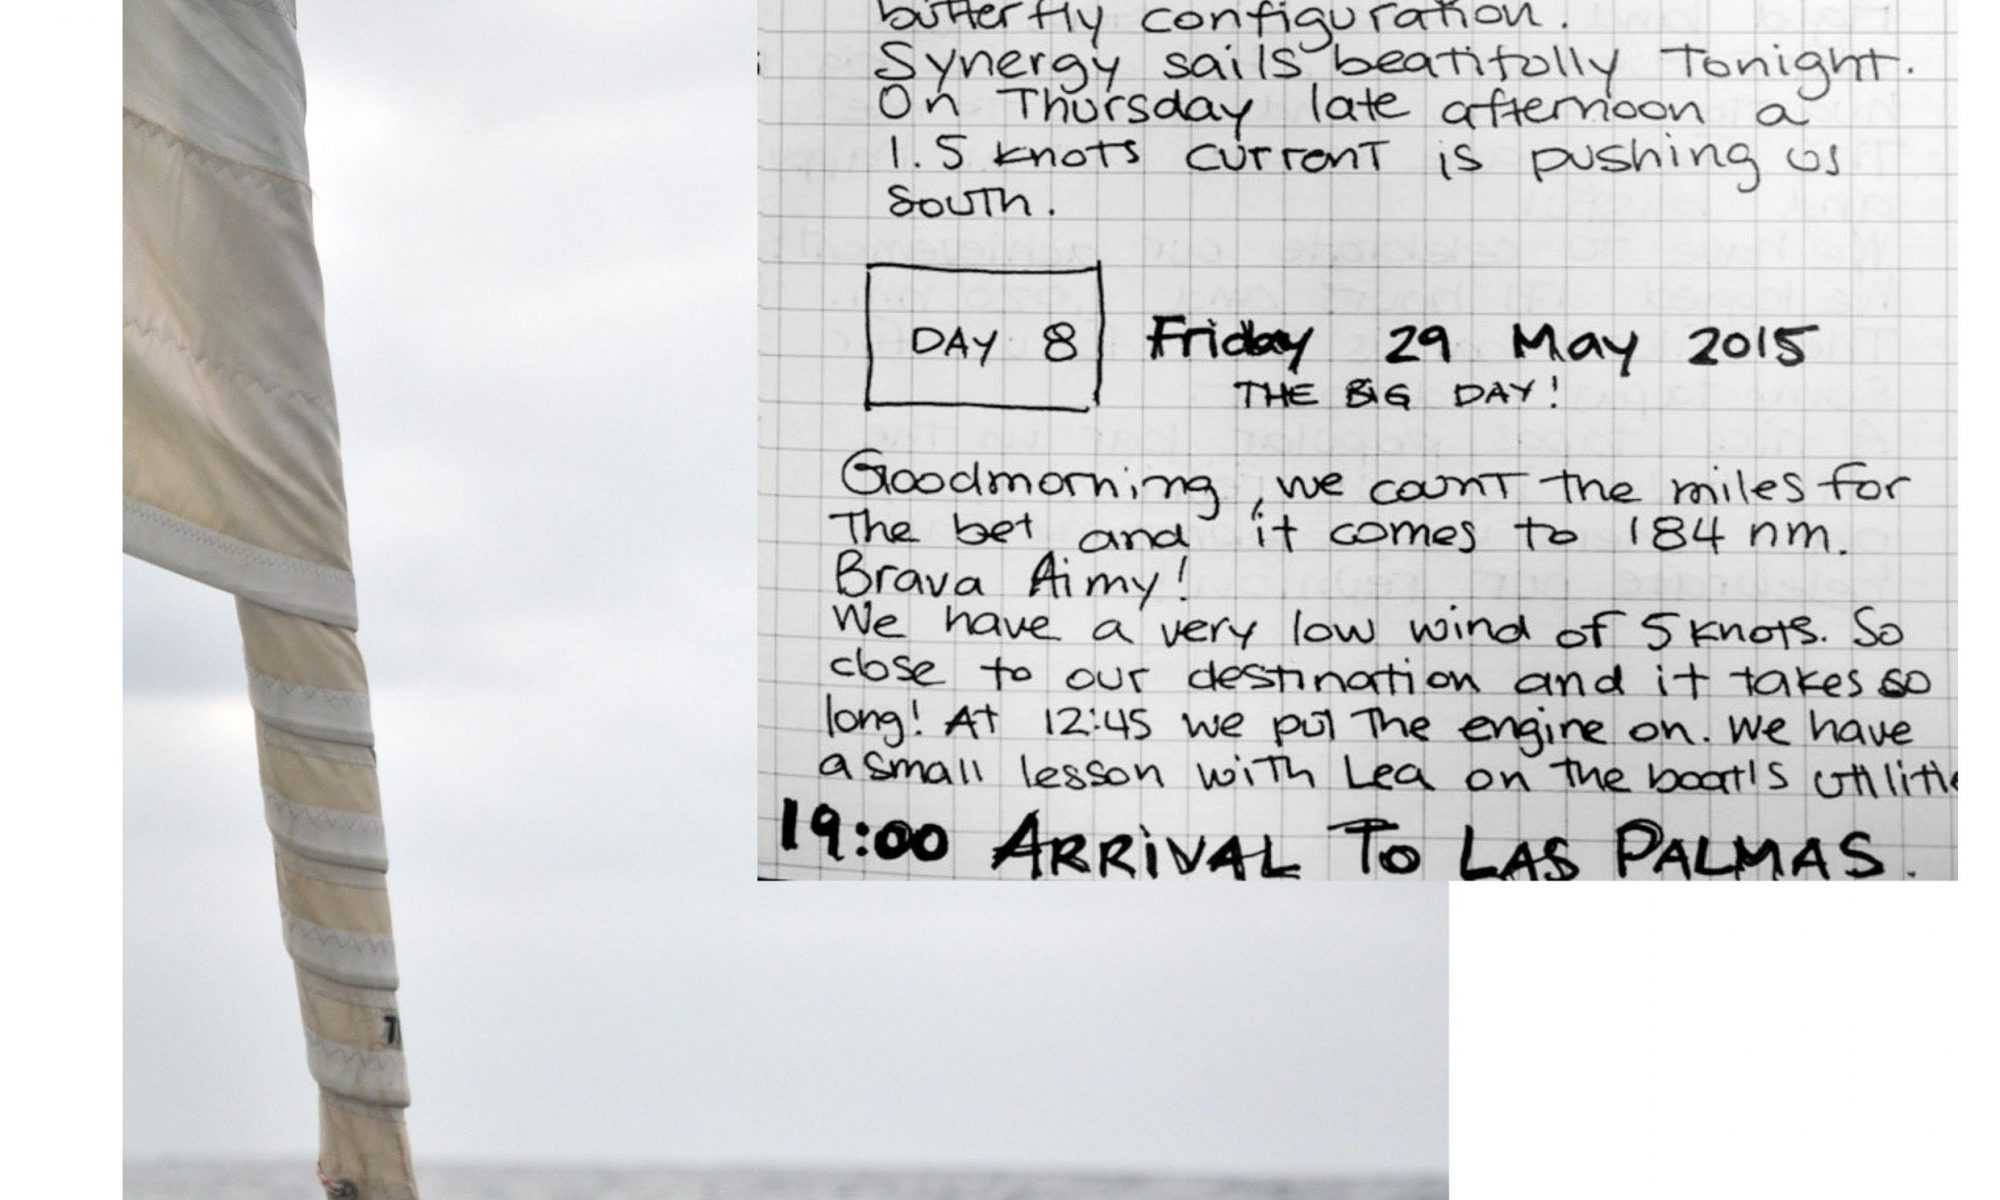 butterfly configuration.
Synergy sails beatifolly Tonight.
On Thursday late afternoon a
1.5 knots current is pushing us
south.
DAY 8
Friday 29 May 2015
THE BIG DAY!
Goodmorning, we count the miles for
The bet and it comes to 184 nm.
Brava Aimy!
We have a very low wind of 5 knots. So
close to our destination and it takes so
long! At 12:45 we put The engine on. We have
a small lesson with Lea on the boat's
19:00 ARRIVAL TO LAS PALMAS.